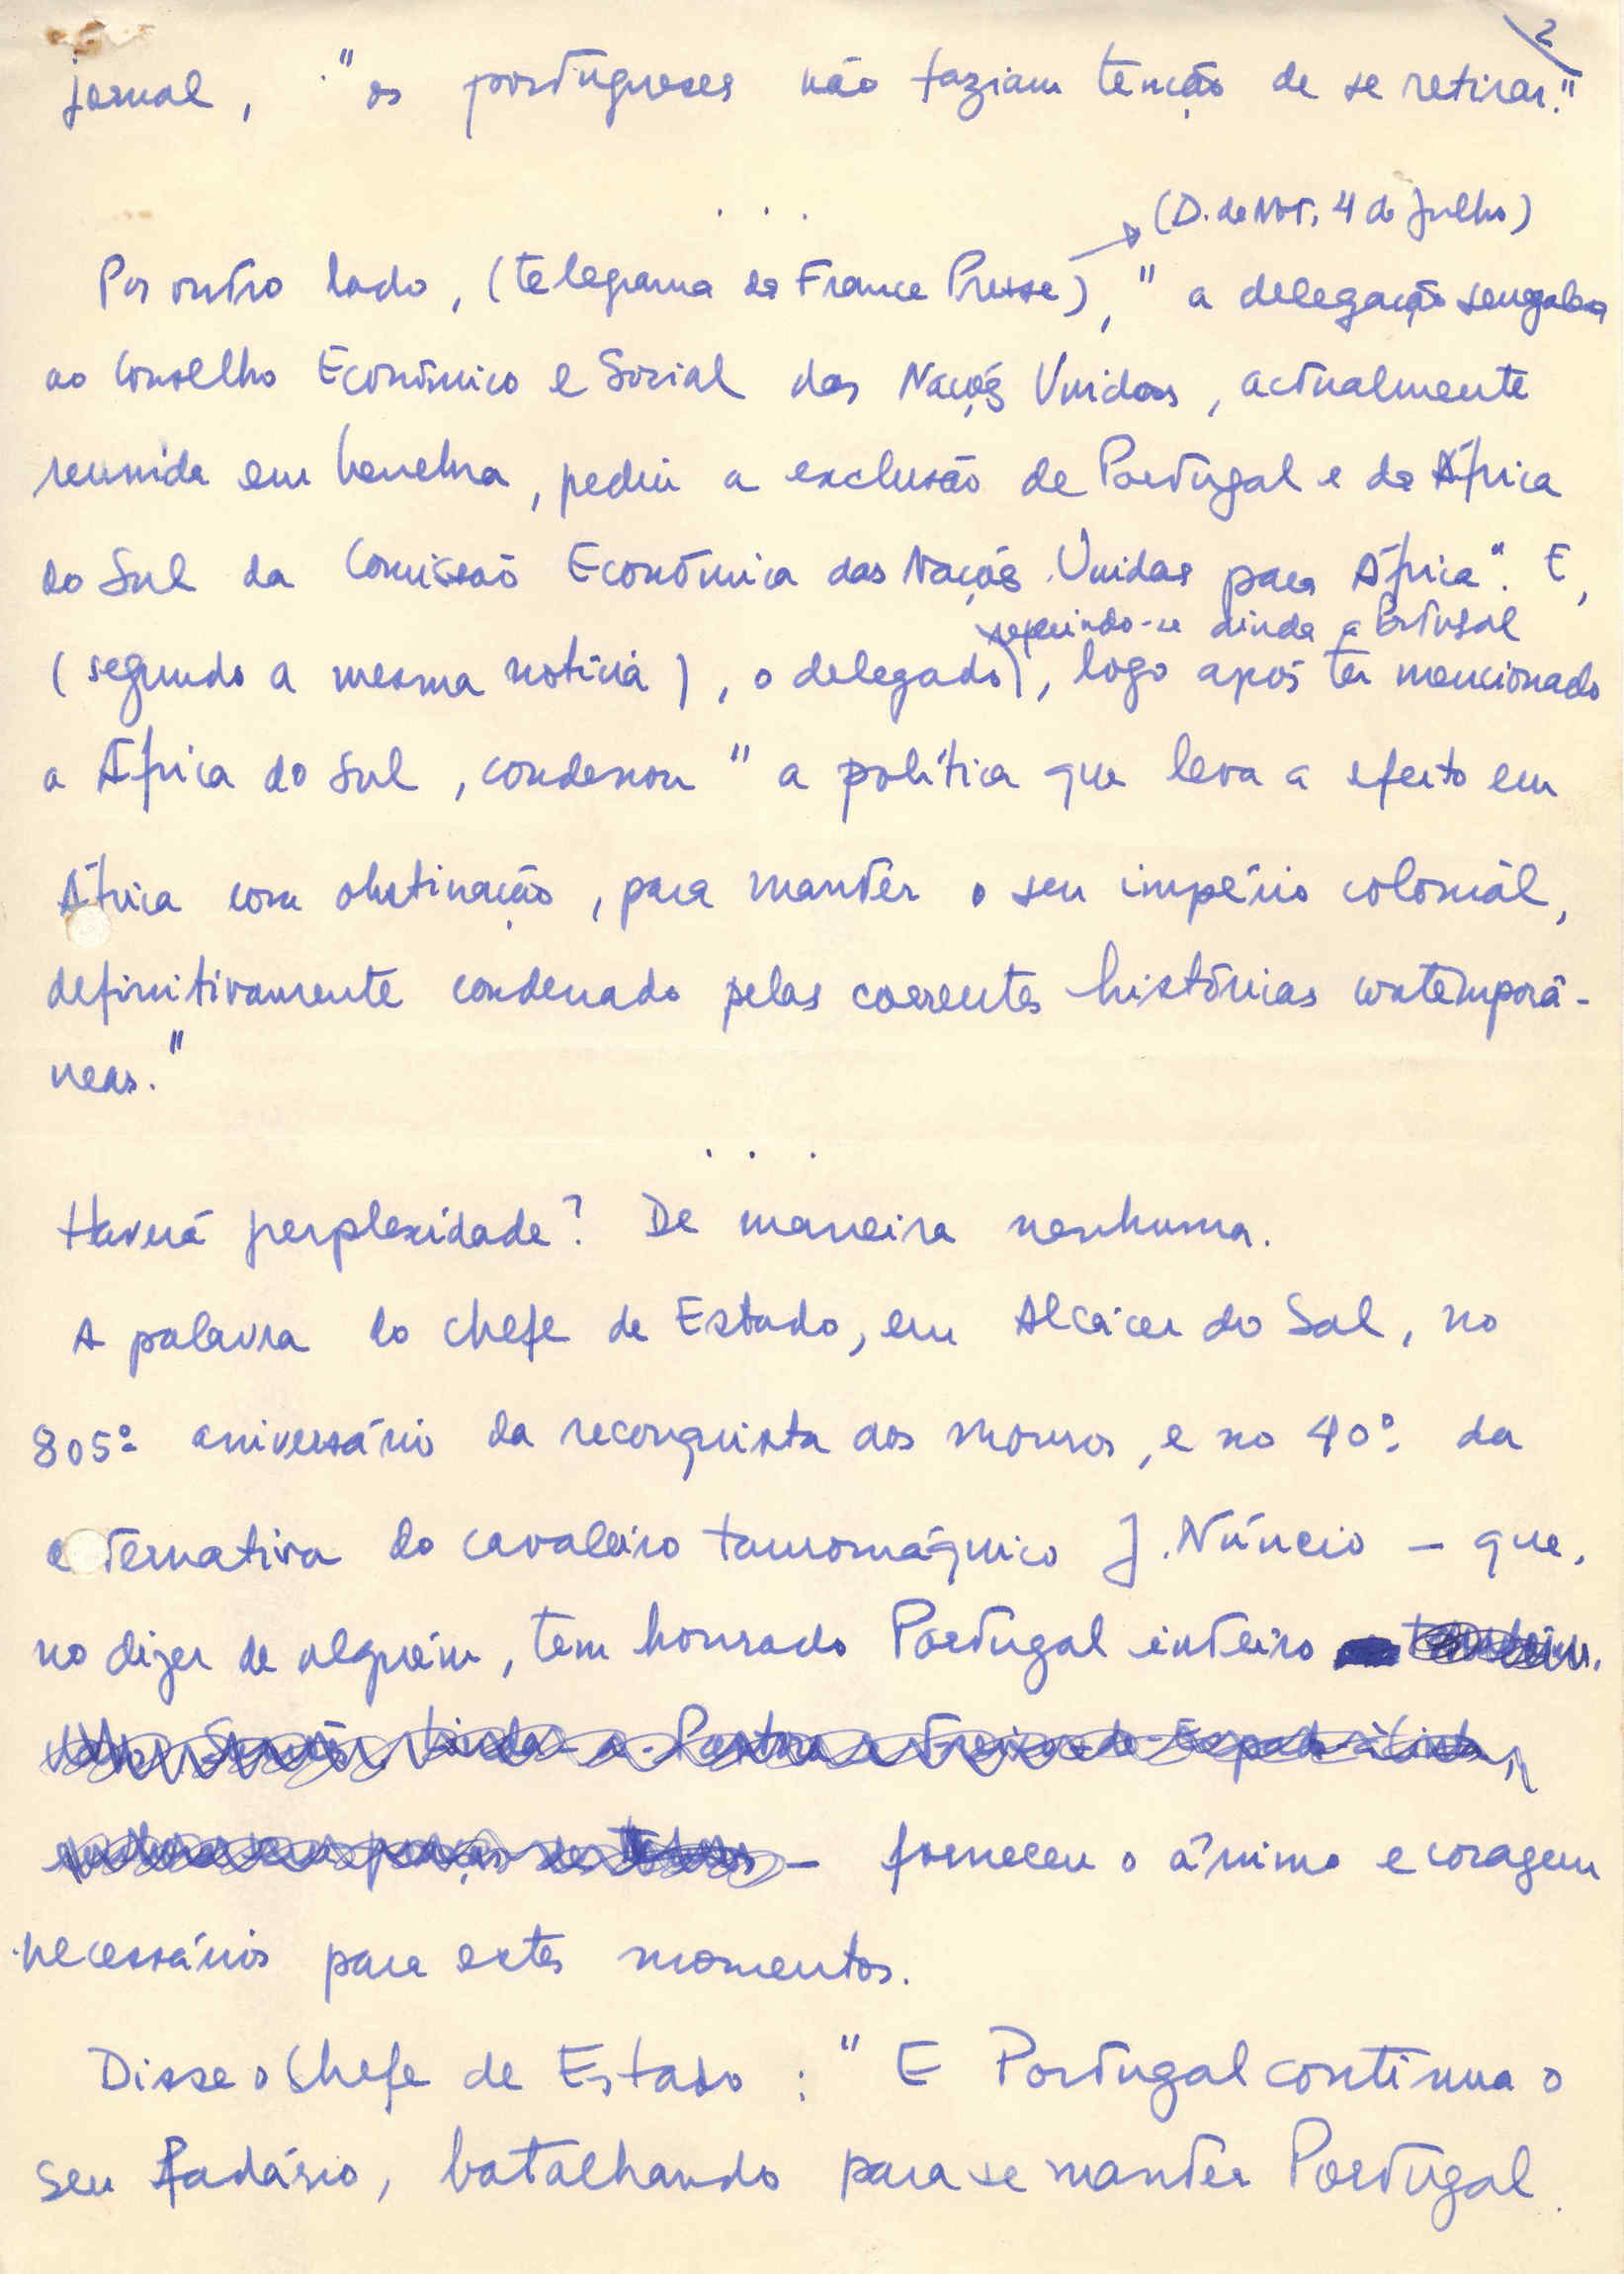 2
jornal, "os portugueses não faziam tenção de se retirar."
. . .
(D. de Not, 4 de Julho)
Por outro lado, (telegrama da France Presse), "a delegação senegalesa
ao Conselho Económico e Social das Nações Unidas, actualmente
reunida em Genebra, pediu a exclusão de Portugal e da África
do Sul da Comissão Económica das Nações Unidas para África". E,
referindo-se ainda a Portugal
(segundo a mesma notícia), o delegado, logo após ter mencionado
a África do Sul, condenou "a política que leva a efeito em
África com obstinação, para manter o seu império colonial,
definitivamente condenado pelas correntes históricas contemporâ-
neas."
. . .
Haverá perplexidade? De maneira nenhuma.
A palavra do chefe de Estado, em Alcácer do Sal, no
805º aniversário da reconquista aos mouros, e no 40º da
alternativa do cavaleiro tauromáquico J. Núncio – que,
no dizer de alguém, tem honrado Portugal inteiro
– forneceu o ânimo e coragem
necessários para estes momentos.
Disse o Chefe de Estado: "E Portugal continua o
seu Fadário, batalhando para se manter Portugal.